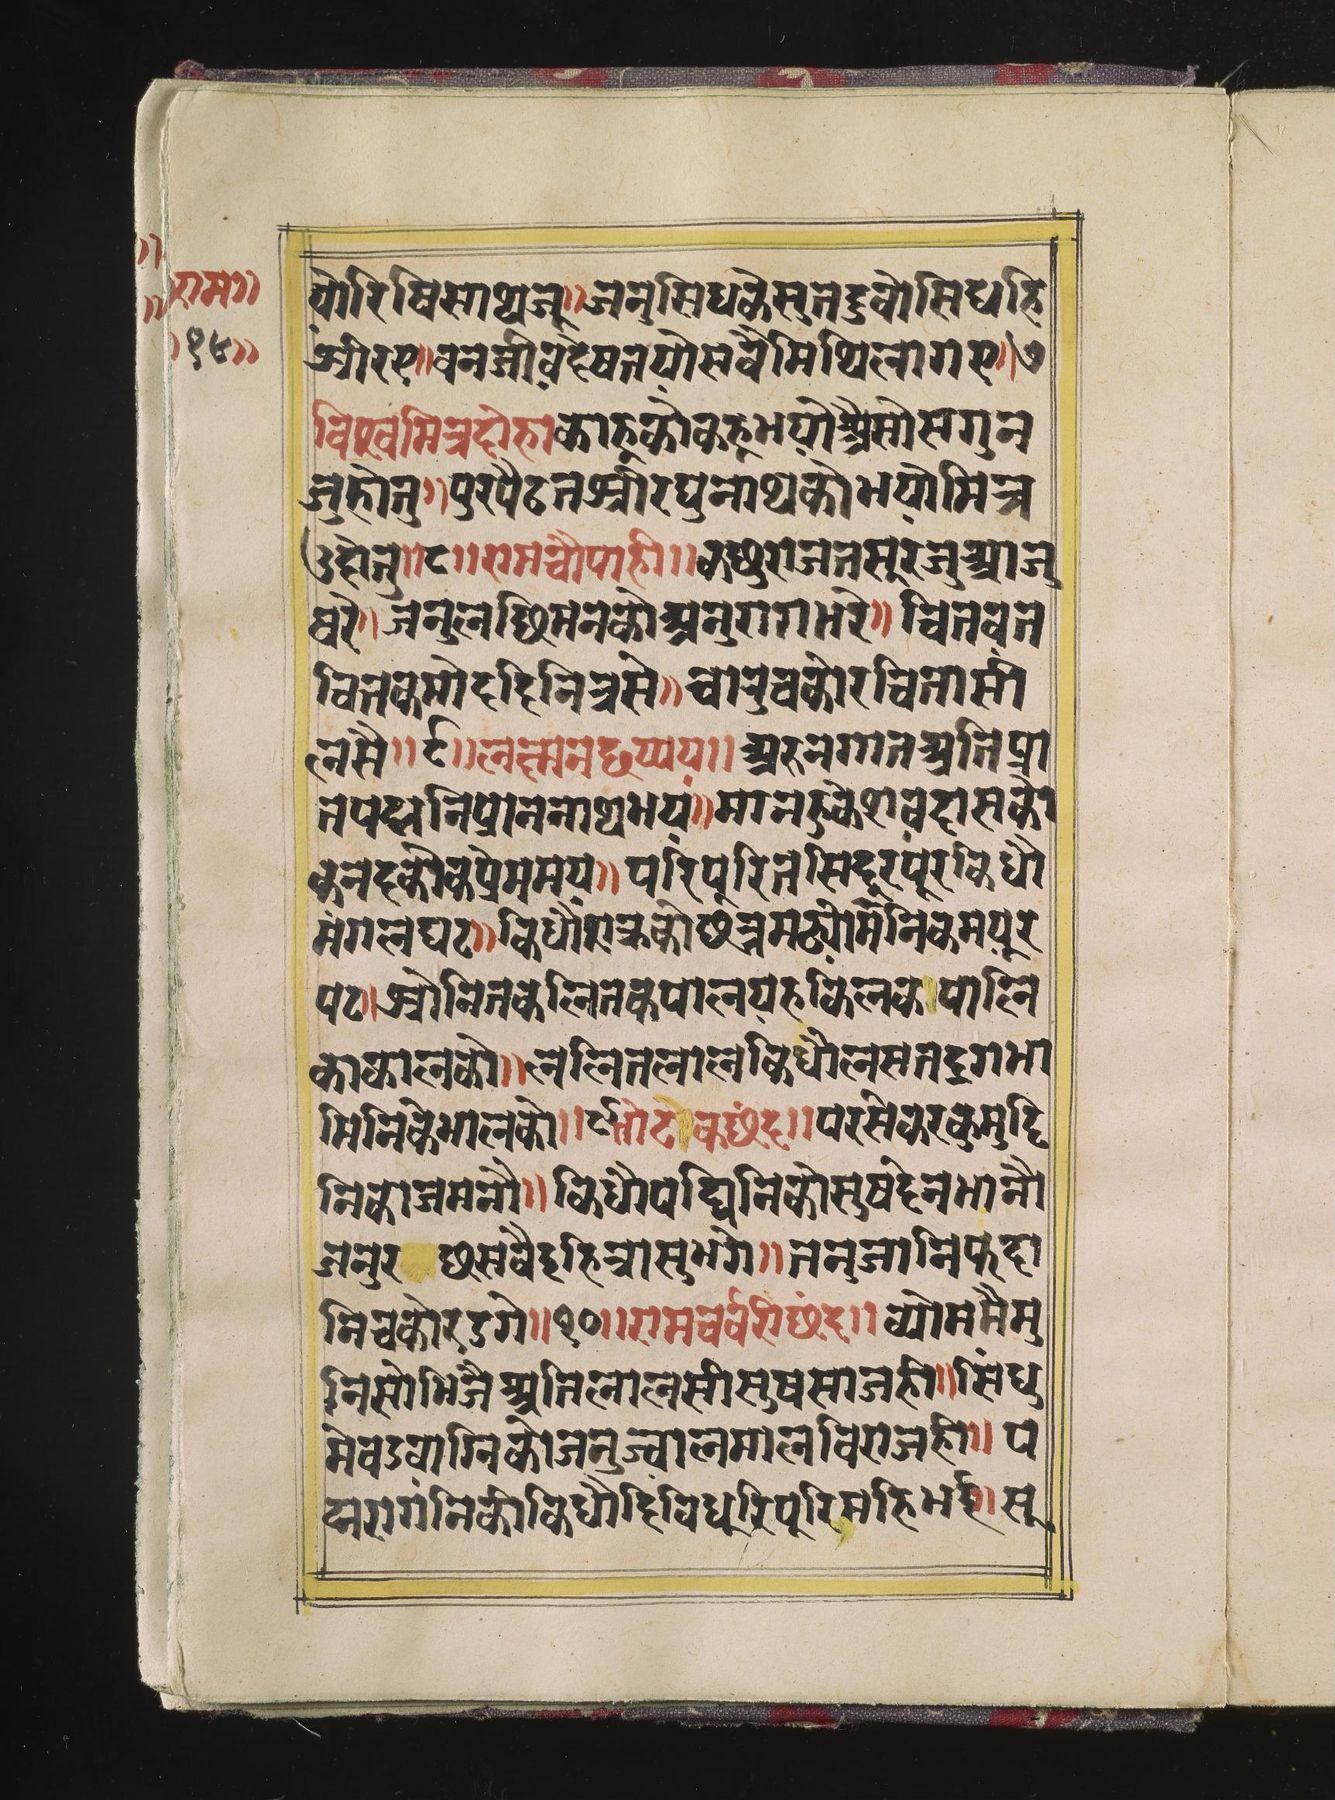 ॥राम॥
॥१४॥
योरिषिसाथजू॥जनुसिधकेसुतदुवोसिधहि
श्रीरए॥बनजीवदेषतयोसवैमिथिलागए॥७
विश्वमित्रदोहाकाहूकौकहूभयोऔसोसगुन
जुहोतु॥पुरपैठतश्रीरघुनाथकोभयोमित्र
उद्दोतु॥८॥रामचौपाही॥कछुराजतसूरजुआजु
षरे॥जनुलछिमनकोअनुरागभरे॥चितवत
चितकमोददिनित्रसे॥चारुचकोरचितासी
लसै॥९॥लक्ष्मनछप्पय॥अरुनगातअतिप्रा
तपद्मनिप्राननाथभयं॥मानहुकेशवदासको
कनदकोकप्रेममयं॥परिपूरितसिंदूरपूरकिधौ
मंगलघट॥किधौशक्रकोछत्रमढ्योमेनिकमयूर
पट॥श्रौनितकलितकपालयहकिलक पालि
काकालकौ॥ललितलालकिधौलसतद्रगभा
मिनिकेभालको॥९तोट कछंद॥परसेकरकुमुदि
निकोजमनौ॥किधौपद्मिनिकोसुषदेनभानौ
जनुर छसवैदृहित्रासुभगे॥तनुजानिफदा
निचकोरडगे॥१०॥रामचर्वरीछंद॥व्योममैमु
निसोभिजैअतिलालसीसुषसाजही॥सिंधु
मेवडवाग्निकोजनुज्वालमालविराजही॥प
द्मरागंनिकीकिधौदिविधूरिपूरिसहिभई॥सू